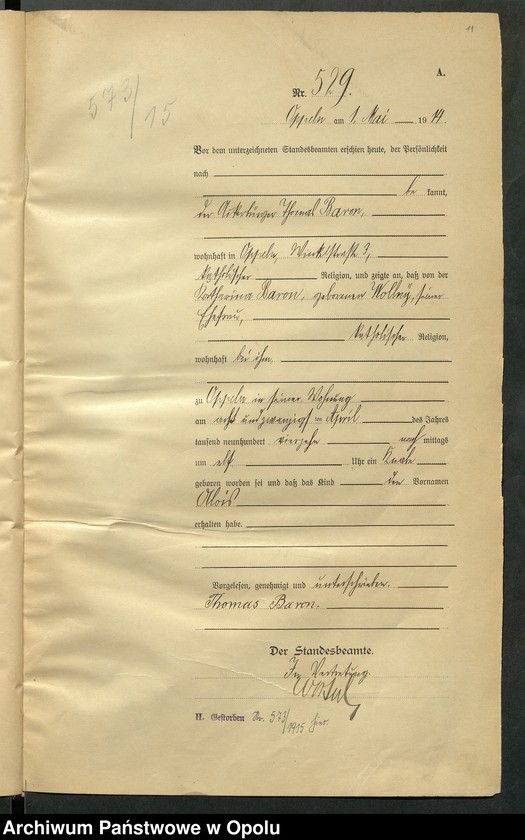 11
A.
573/15
Nr. 529.
Oppeln am 1. Mai 1914.
Vor dem unterzeichneten Standesbeamten erschien heute, der Persönlichkeit
nach
be kannt,
der Ackerbürger Thomas Baron,
wohnhaft in Oppeln,
katholischer Religion, und zeigte an, daß von der
Katharina Baron, geborenen Wollny, seiner
Ehefrau,
katholischer Religion,
wohnhaft bei ihm,
zu Oppeln in seiner Wohnung
am acht und zwanzigsten April des Jahres
tausend neunhundert vierzehn nach mittags
um elf Uhr ein Knabe
geboren worden sei und daß das Kind den Vornamen
Alois
erhalten habe.
Vorgelesen, genehmigt und unterschrieben.
Thomas Baron.
Der Standesbeamte.
In Vertretung.
II. Gestorben Nr. 573/1915 hier.
Archiwum Państwowe w Opolu